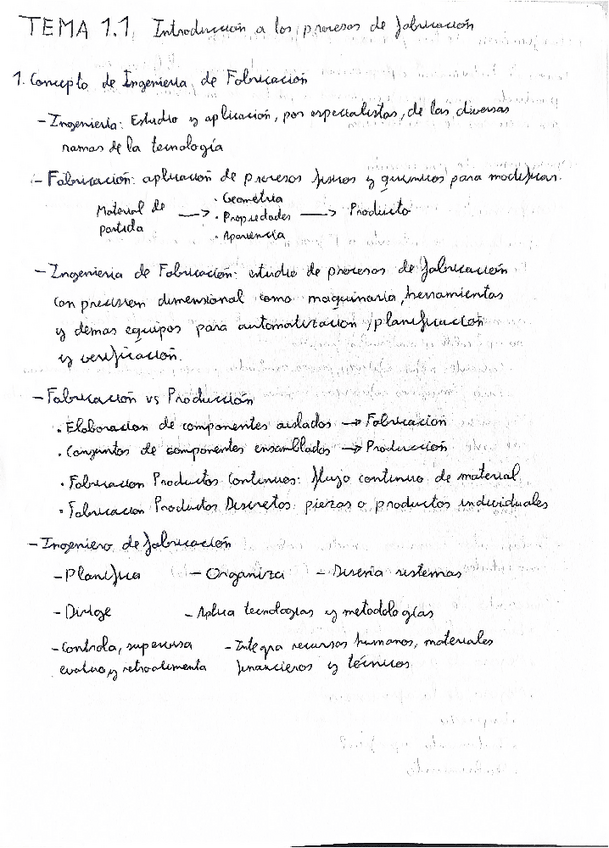 TEMA 1.1. Introducción a los procesos de fabricación
1. Concepto de Ingeniería de Fabricación
- Ingeniería: Estudio y aplicación, por especialistas, de las diversas
ramas de la tecnología
- Fabricación: aplicación de procesos físicos y químicos para modificar.
Material de partida → · Geometría → Producto
· Propiedades
· Apariencia
- Ingeniería de Fabricación: estudio de procesos de fabricación
con precision dimensional como maquinaria, herramientas
y demas equipos para automatización, planificación
y verificación.
- Fabricación vs Producción
· Elaboracion de componentes aislados → Fabricación
· Conjuntos de componentes ensamblados → Producción
· Fabricacion Productos Continuos: flujo continuo de material
· Fabricación Productos Discretos: piezas o productos individuales
- Ingeniero de fabricación
- Planifica - Organiza - Diseña sistemas
- Dirige - Aplica tecnologías y metodologías
- Controla, supervisa - Integra recursos humanos, materiales
evalua y retroalimenta financieros y técnicos